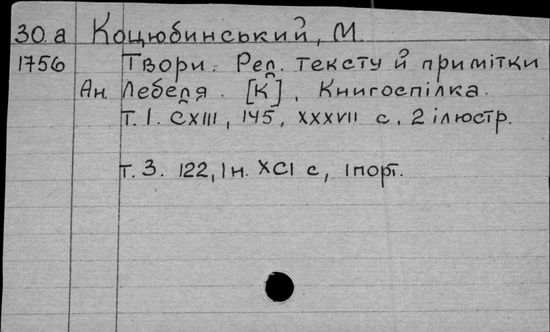 30.а Коцюбинський, М.
1756 Твори. Реп. тексту й примітки
Ан. Лебедя. [К], Книгоспілка.
т. 1. CXIII, 145, XXXVII с, 2 ілюстр.
т. 3. 122, 1н. XCI с, 1 порт.